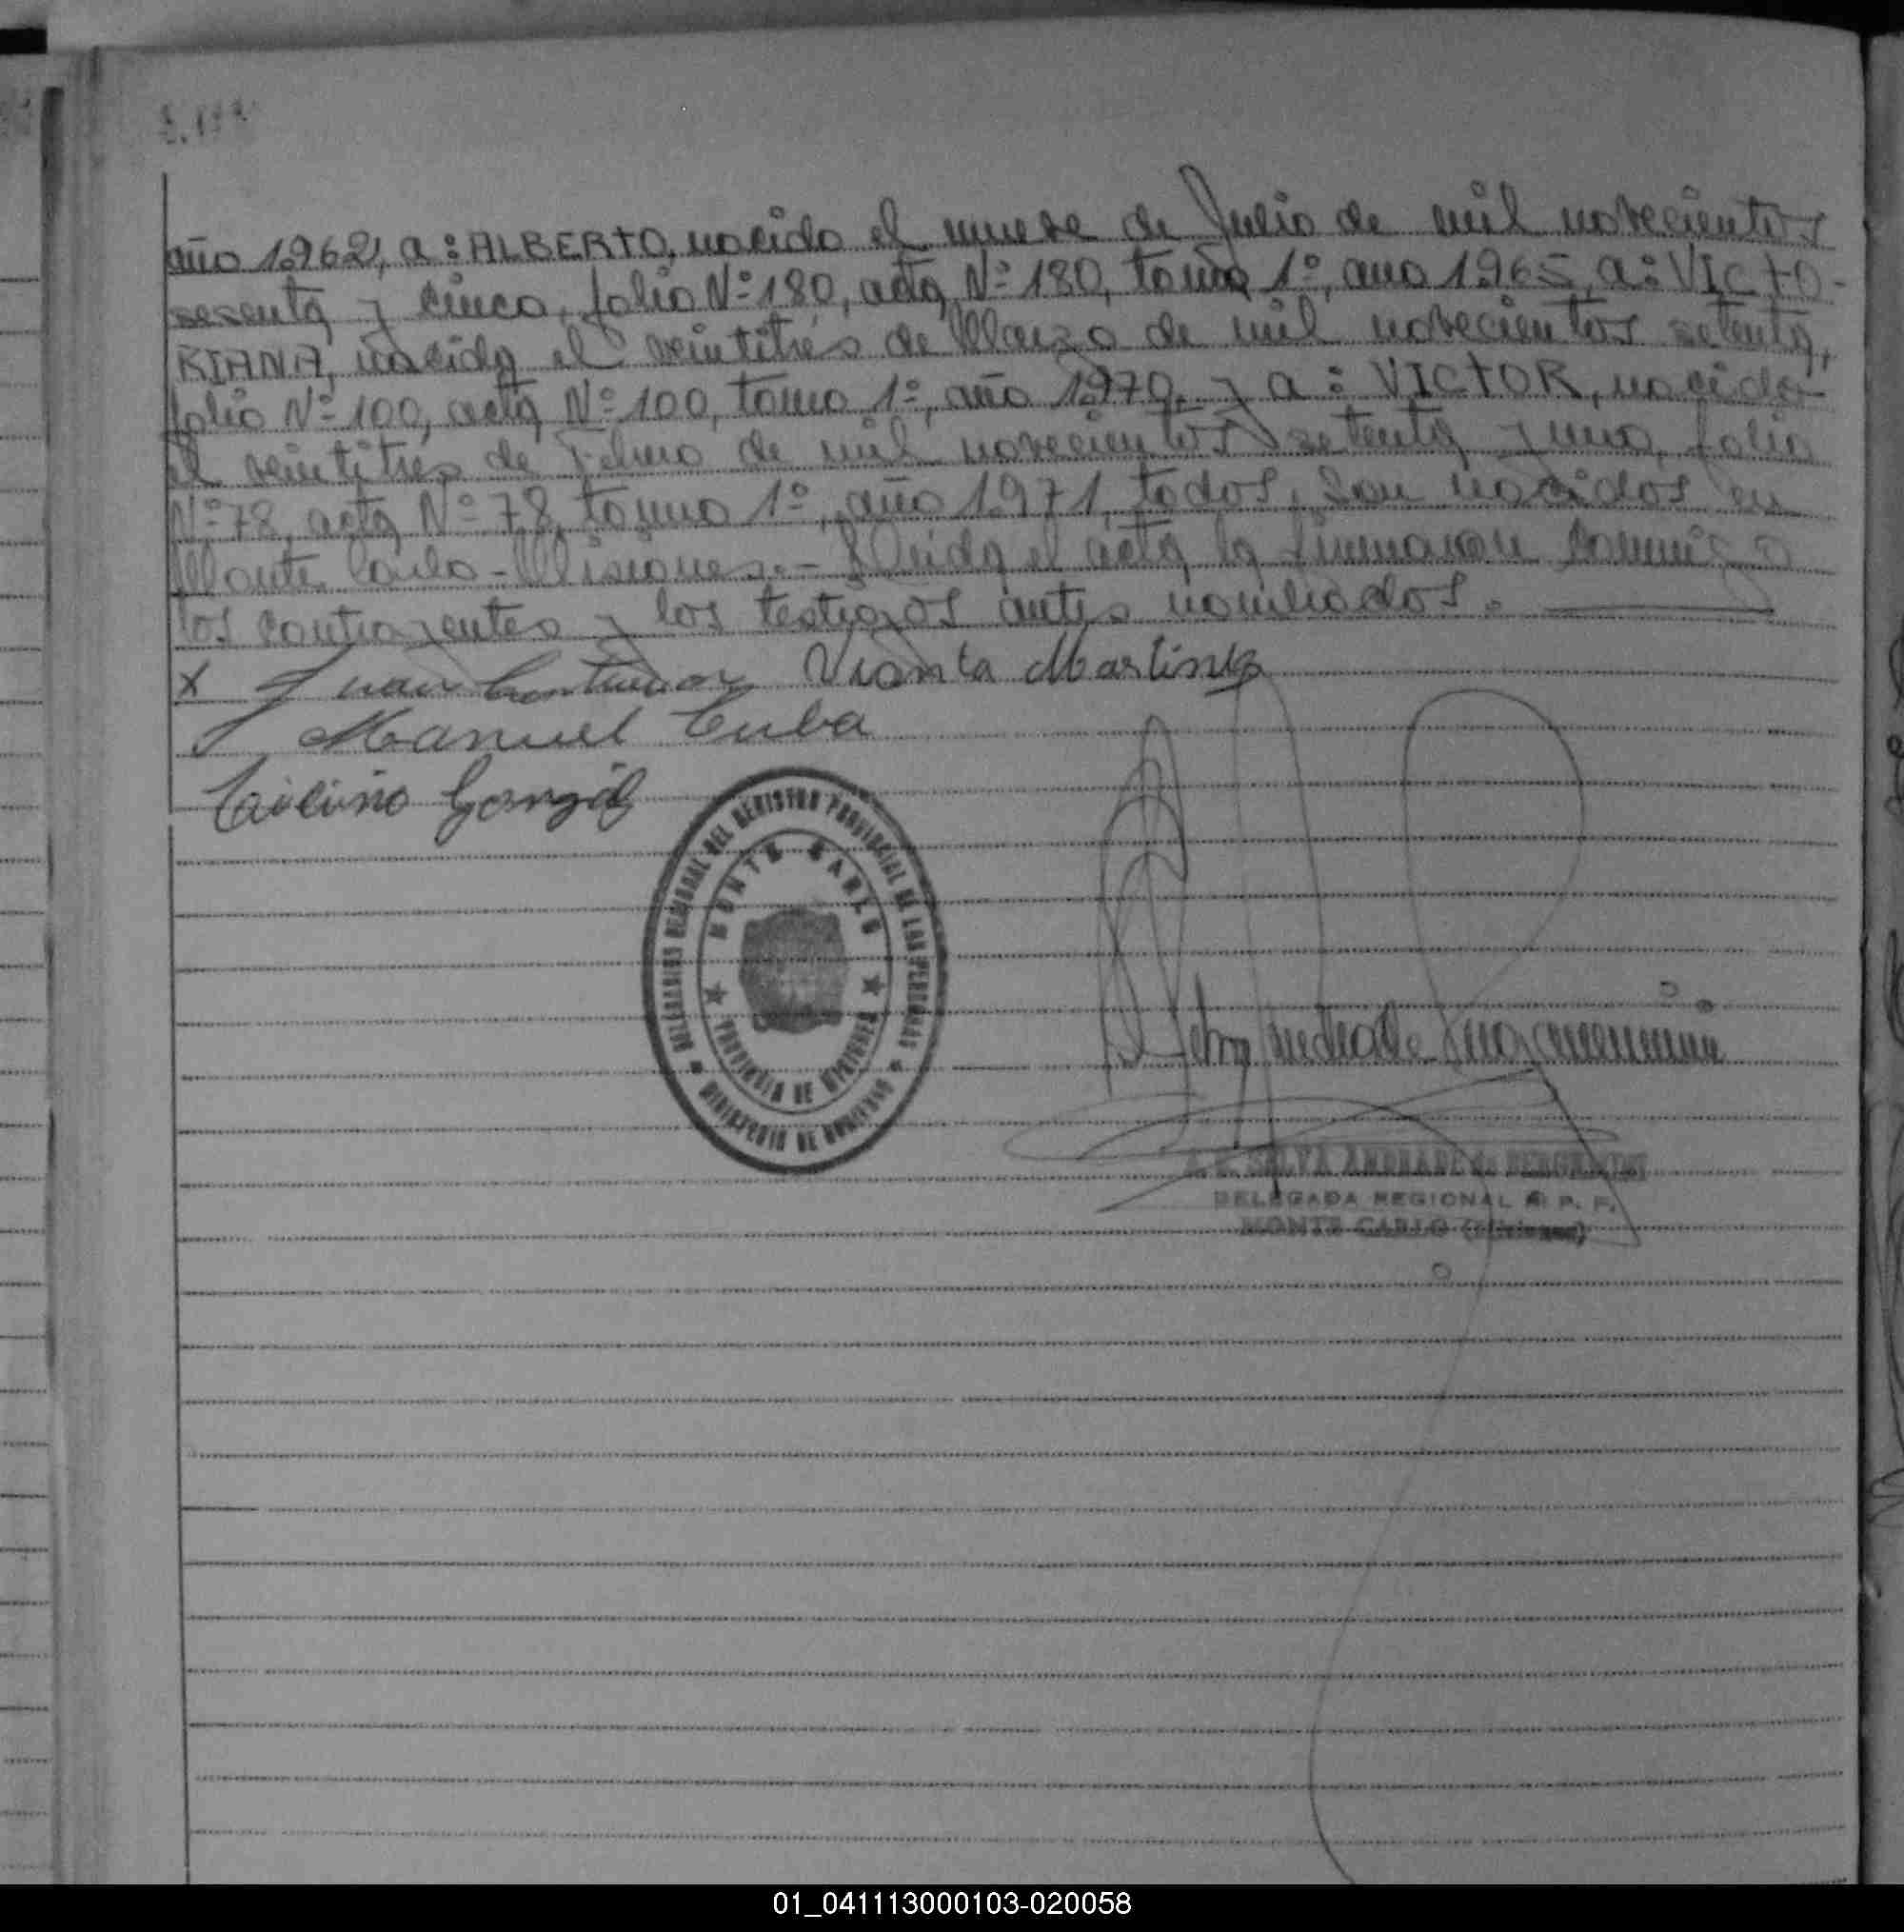 año 1.962, a: ALBERTO, nacido el nueve de Julio de mil novecientos
sesenta y cinco, folio Nº 180, acta Nº 180, tomo 1º, año 1.965, a: VICTO-
RIANA, nacida el veintitrés de Marzo de mil novecientos setenta,
folio Nº 100, acta Nº 100, tomo 1º, año 1.970, y a: VICTOR, nacido
el veintitrés de Febrero de mil novecientos setenta y uno, folio
Nº 78, acta Nº 78, tomo 1º, año 1.971, todos, son nacidos en
Monte Carlo - Misiones.- Leida el acta la firmaron conmigo
los contrayentes y los testigos antes nombrados.
x Juan Vianta Martinez
Manuel Cuba
DELEGACION REGIONAL DEL REGISTRO PROVINCIAL DE LAS PERSONAS
MONTE CARLO
PROVINCIA DE MISIONES
MINISTERIO DE GOBIERNO
SELVA ANDRADE de
DELEGADA REGIONAL R. P. P.
MONTE CARLO (Misiones)
01_041113000103-020058